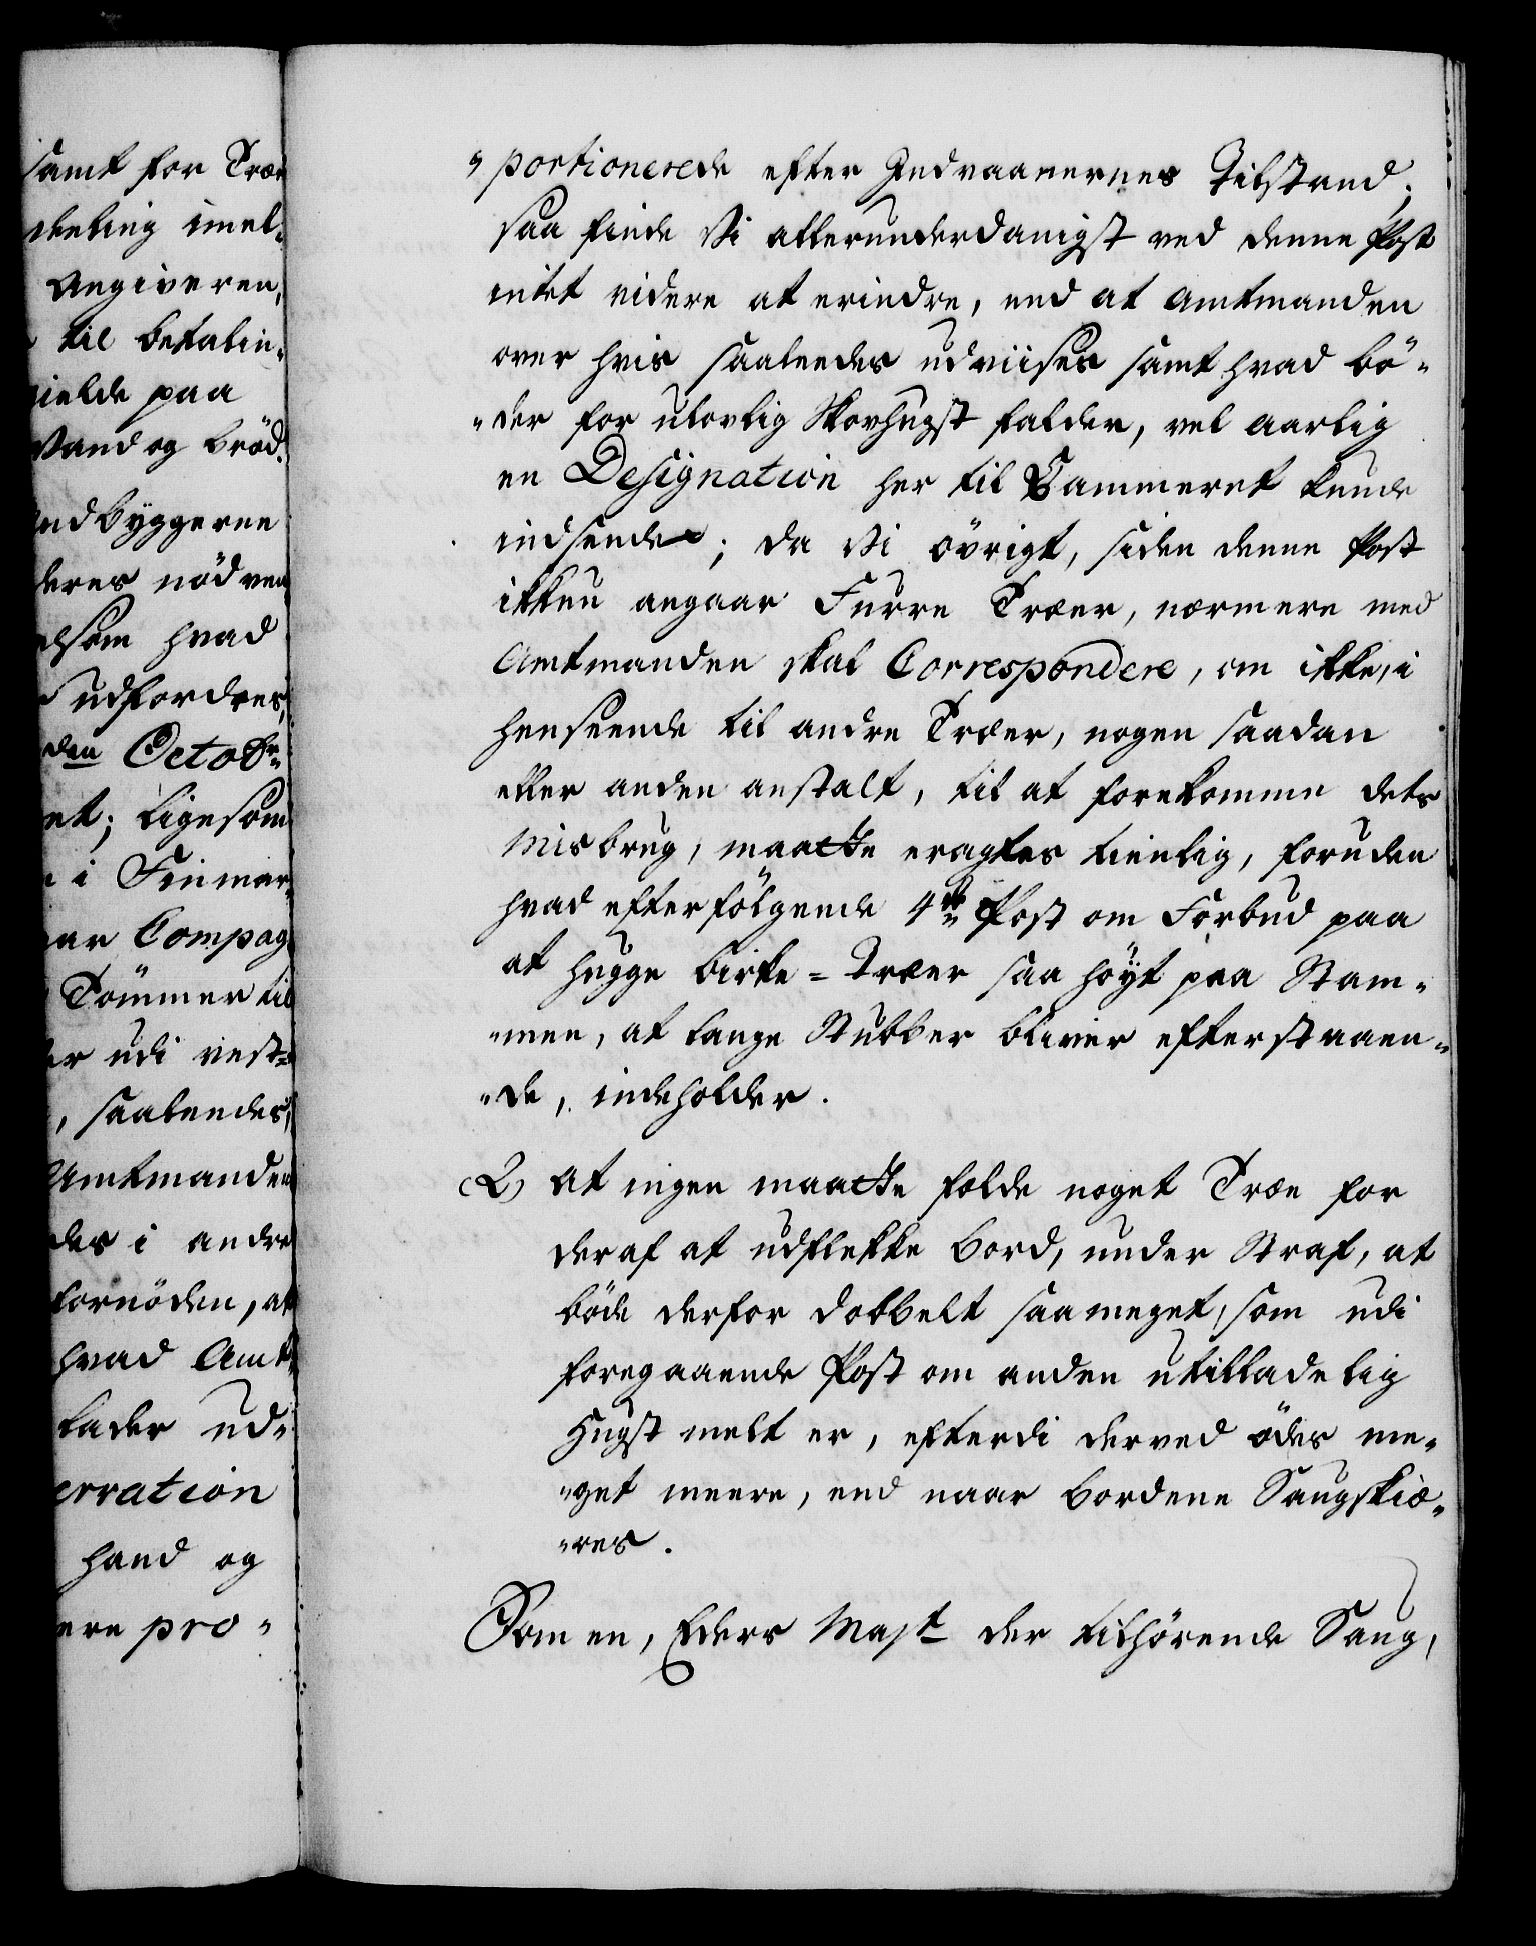 samt for Træ
deling imel-
Angiveren,
til betalin-
gielde paa
Vand og brød.
ndbyggerne
deres nødven
lsom hvad
udfordres,
den Octobr:
et; ligesom
i Finmar-
ar Compag
Tømmer til
er udi vest-
, saaledes,
Amtmanden
des i andre
fornøden, at
hvad Amt
lader ud-
erration
hand og
ere pro-
"portionerede efter Indvaanernes Tilstand;
saa finde Vi allerunderdanigst ved denne Post
intet videre at erindre, end at Amtmanden
over hvis saaledes udviises samt hvad bö-
"der for ulovlig Skovhugst falder, vel aarlig
en Designation her til Cammeret kunde
indsende; da Vi övrigt, siden denne Post
ikkun angaar Furre Træer, nærmere med
Amtmanden skal Correspondere, om ikke, i
henseende til andre Træer, nogen saadan
eller anden anstalt, til at forekomme dets
Misbrug, maatte eragtes tienlig, foruden
hvad efterfölgende 4de Post om Forbud paa
at hugge birke-Træer saa höyt paa Stam-
"men, at lange Stubber bliver efterstaaen-
"de, indeholder.
(2) at ingen maatte fælde noget Træe for
deraf at udflekke bord, under Straf, at
böde derfor dobbelt saa meget, som udi
foregaaende Post om anden utilladelig
Hugst melt er, efterdi derved ödes me-
"get meere, end naar bordene Saugskiæ-
"res.
Som en, Eders Mayt der tilhörende Saug,